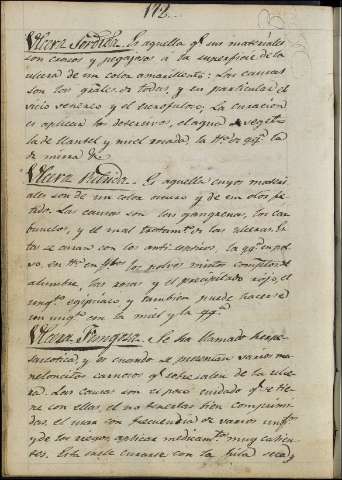 172.
Ulcera Sordida. Es aquella qe. sus materiales
son crasos y pegajosos a la superficie de la
ulcera de un color amarillento: Las causas
son las grales. de todas, y en particular el
vicio venereo y el escrofuloso. La curacion
es aplicar los detersivos, el agua veget
la de llantel y miel rosada, la
de mirra &
Ulcera Putrida. Es aquella cuyos materi
ales son de un color oscuro y de un olor fe
tido. Las causas son las gangrenas, los car
bunclos, y el mal tratamto. de las ulceras. Es
tas se curan con los anti-septicos, la en pol
vo, en los polvos mistos comptos. de
alumbre, las rosas y el precipitado rojo, el
ungto. egipciaco y tambien puede hacerse
con ungto. con la miel y la
Ulcera Fungosa. Se ha llamado hiper
sarcotica, y es cuando se presentan varios ma
meloncitos carnosos qe. sobresalen de la ulce
ra. Las causas son el poco cuidado qe. se tie
ne con ellas, el no tenerlas bien comprimi
das, el usar con frecuencia de varios ungtos.
y de los riegos, aplicar medicamtos. muy calien
tes. Esta suele curarse con la hila seca, y